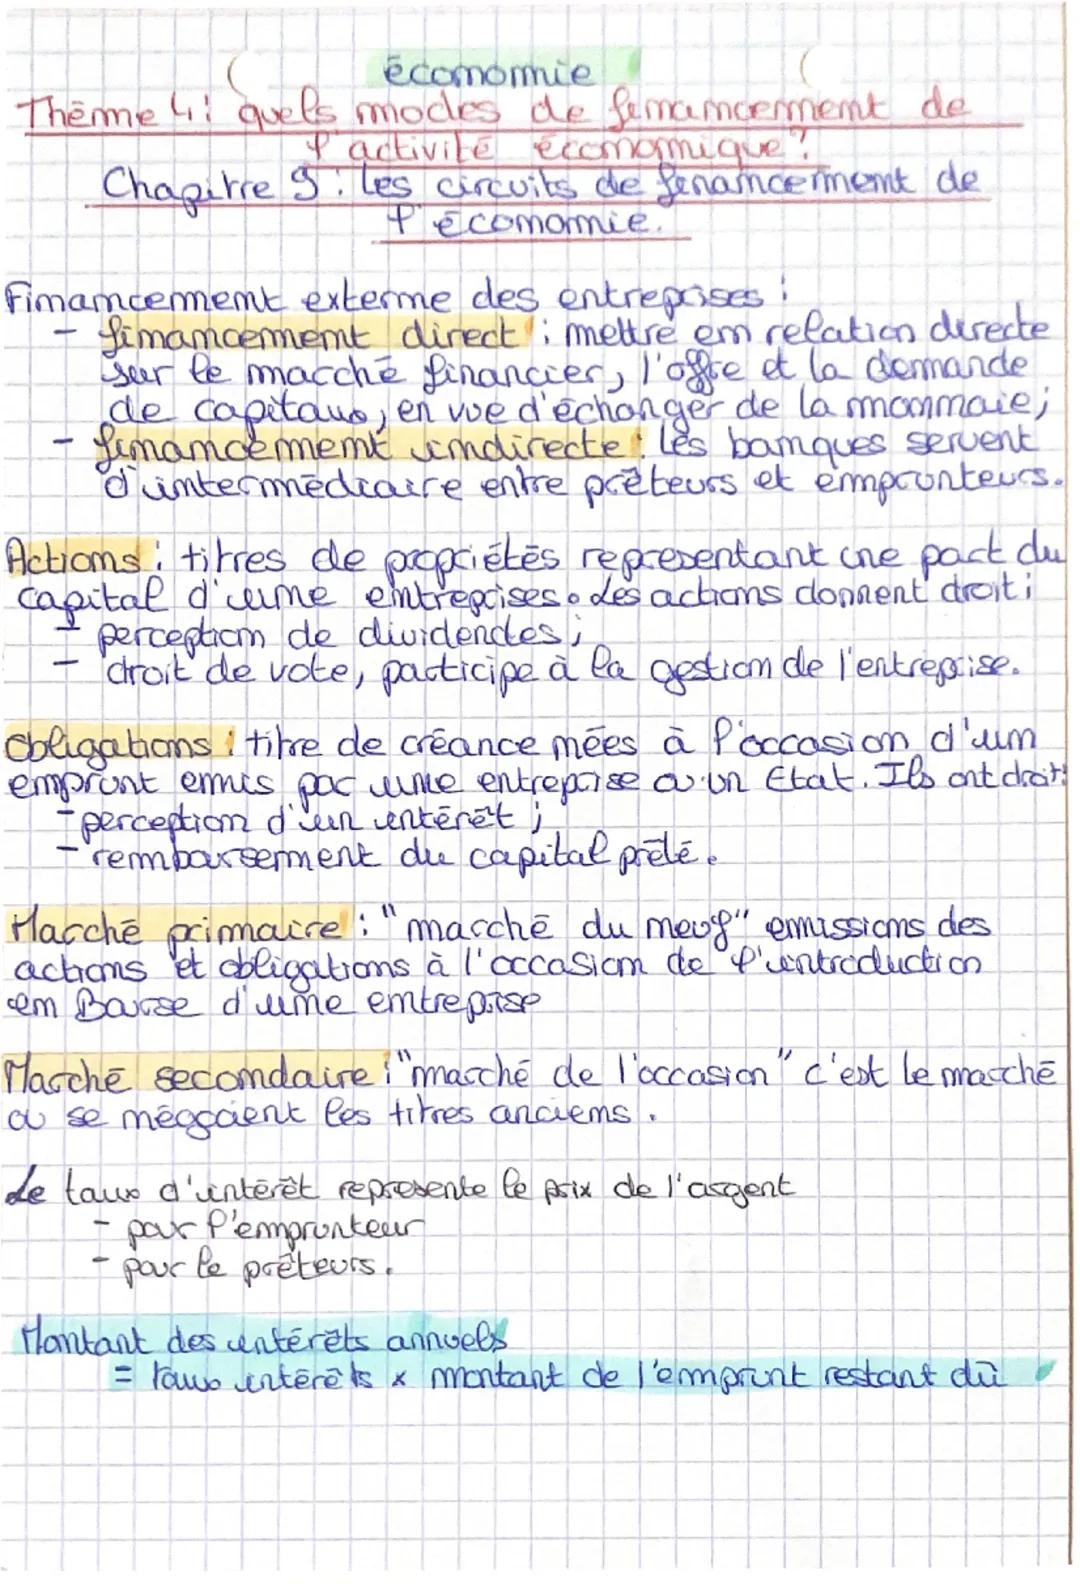 économie
Thème 4 : quels modes de financement de
l'activité économique ?
Chapitre 9 : les circuits de financement de
l'économie.
Financement externe des entreprises :
- financement direct : mettre en relation directe
sur le marché financier, l'offre et la demande
de capitaux, en vue d'échanger de la monnaie ;
- financement indirecte : les banques servent
d'intermédiaire entre prêteurs et emprunteurs.
Actions : titres de propriétés representant une part du
capital d'une entreprises. Les actions donnent droit :
- perception de dividendes ;
- droit de vote, participe à la gestion de l'entreprise.
Obligations : titre de créance nées à l'occasion d'un
emprunt emis par une entreprise ou un Etat. Ils ont droit :
- perception d'un intérêt ;
- remboursement du capital prêté.
Marché primaire : "marché du neuf" emissions des
actions et obligations à l'occasion de l'introduction
en Bourse d'une entreprise
Marché secondaire : "marché de l'occasion" c'est le marché
ou se négocient les titres anciens.
Le taux d'intérêt represente le prix de l'argent
- pour l'emprunteur
- pour le prêteurs.
Montant des intérêts annuels
= taux intérêts x montant de l'emprunt restant dû